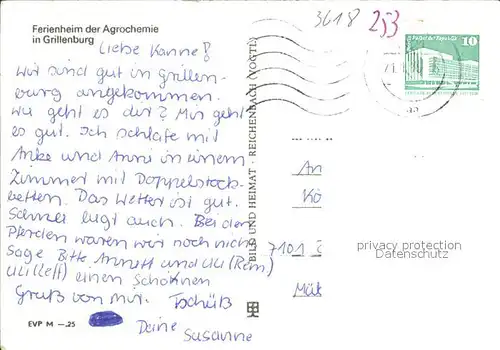 Ferienheim der Agrochemie
in Grillenburg
3618
253
Liebe Kanne!
Wir sind gut in Grillen-
burg angekommen.
Wie geht es dir? Mir geht
es gut. Ich schlafe mit
Anke und Anni in einem
Zimmer mit Doppelstock-
betten. Das Wetter ist gut.
Schnee liegt auch. Bei den
Pferden waren wir noch nicht
Sage Bitte Annett und Uli (Rem)
Uli (Leff) einen Schönen
Gruß von mir. Tschüß
Deine
Susanne
EVP M —,25
BILD UND HEIMAT · REICHENBACH (VOGTL)
10
An
Kö
7101
privacy protection
Datenschutz